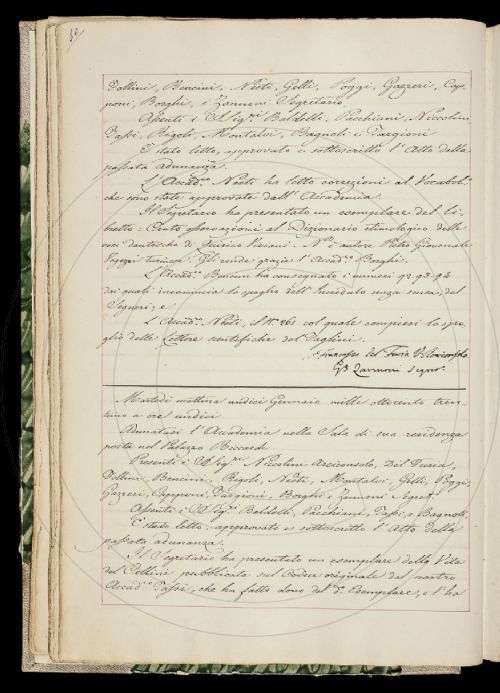 50
Follini, Bencini, Nesti, Gelli, Poggi, Gazzeri, Cap-
poni, Borghi, e Zannoni Segretario
Assenti i SS.ig.ri Baldelli, Pacchiani, Niccolini
Tassi, Rigoli, Montalvi, Bagnoli e Targioni
È stato letto, approvato e sottoscritto l'Atto della
passata adunanza.
L'Accad.co Nesti ha letto correzioni al Vocabol.o
che sono state approvate dall'Accademia.
Il Segretario ha presentato un esemplare del li-
bretto: Cento osservazioni al Dizionario etimologico delle
voci dantesche di Quirico Viviani. N'è autore Pietro Giovenale
Vegezzi torinese. Gli rende grazie l'Accad.co Borghi.
L'Accad.co Bencini ha consegnato i numeri 92.93.94
dai quali incomincia lo spoglio dell'Incredulo senza scusa, del
Segneri; e
L'Accad.co Nesti, il N.o 261 col quale compiesi lo spo-
glio delle Lettere scientifiche del Magalini
Francesco del Furia V. Arciconsolo
GB Zannoni Segret.o
Martedì mattina undici Gennaio mille ottocento tren-
tuno a ore undici
Adunatasi l'Accademia nella Sala di sua residenza
posta nel Palazzo Riccardi
Presenti i SS.ig.ri Niccolini Arciconsolo, Del Furia,
Follini, Bencini, Rigoli, Nesti, Montalvi, Gelli, Poggi,
Gazzeri, Capponi, Targioni, Borghi e Zannoni Segret.o
Assenti i SS.ig.ri Baldelli, Pacchiani, Tassi, e Bagnoli
È stato letto, approvato e sottoscritto l'Atto della
passata adunanza.
Il Segretario ha presentato un esemplare della Vita
del Cellini pubblicata sul Codice originale dal nostro
Accad.co Tassi, che ha fatto dono del d.o Esemplare, e l'ha